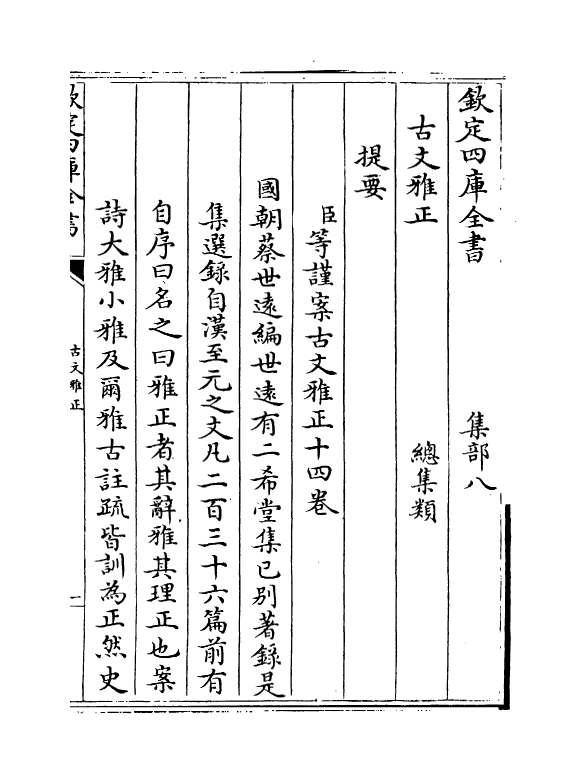 欽定四庫全書　集部八
古文雅正　總集類
提要
臣等謹案古文雅正十四卷
國朝蔡世遠編世遠有二希堂集已别著錄是
集選錄自漢至元之文凡二百三十六篇前有
自序曰名之曰雅正者其辭雅其理正也案
詩大雅小雅及爾雅古註疏皆訓為正然史
欽定四庫全書
古文雅正
一